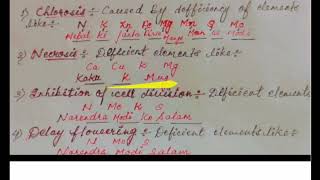 1) Chlorosis:- Caused by defficiency of elements
like:- N K Zn Fe Mg Mn S Mo
2) Necrosis:- Defficient elements like:-
Ca Cu K Mg
Kaku K Mugg
3) Inhibition of cell division:- Defficient elements
N Mo K S
Narendra Modi Ko Salam
4) Delay flowering:- Deficient elements like:-
N Mo S
Narendra Modi Salam